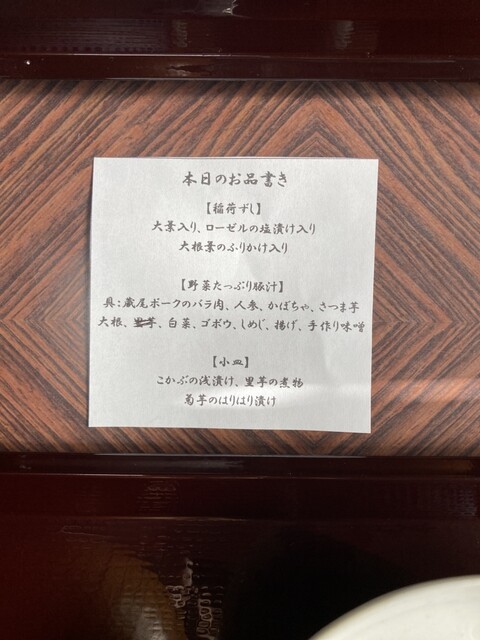 本日のお品書き
【稲荷ずし】
大葉入り、ローゼルの塩漬け入り
大根葉のふりかけ入り
【野菜たっぷり豚汁】
具:蔵尾ポークのバラ肉、人参、かぼちゃ、さつま芋
大根、里芋、白菜、ゴボウ、しめじ、揚げ、手作り味噌
【小皿】
こかぶの浅漬け、里芋の煮物
菊芋のはりはり漬け